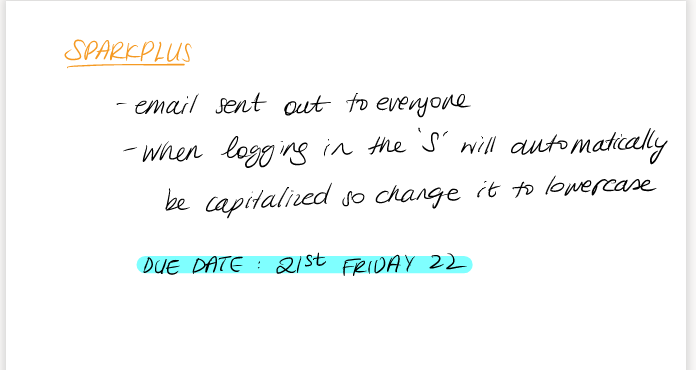 SPARKPLUS
- email sent out to everyone
- when logging in the 's' will automatically
be capitalized so change it to lowercase
DUE DATE : 21st FRIDAY 22